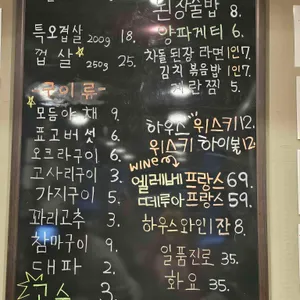 특오겹살 200g 18.
껍살 250g 25.
구이류
모듬야채 9.
표고버섯 6.
오크라구이 6.
고사리구이 7.
가지구이 5.
꽈리고추 3.
참마구이 9.
대파 2.
3.
된장술밥 8.
야파게티 6.
차돌된장라면 1인 7.
김치볶음밥 1인 7.
계란찜 5.
하우스 위스키 12.
위스키 하이볼 12
WINE
엘레베 프랑스 69.
떼루아 프랑스 59.
하우스와인 잔 8.
일품진로 35.
화요 35.